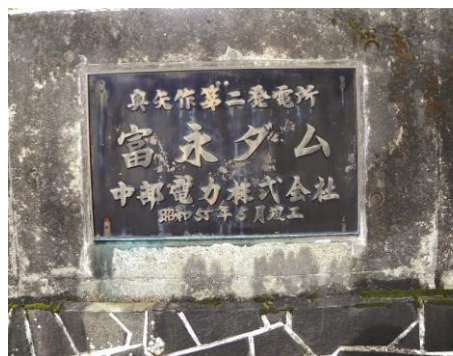 奥矢作第二発電所
富永ダム
中部電力株式会社
昭和55年5月竣工